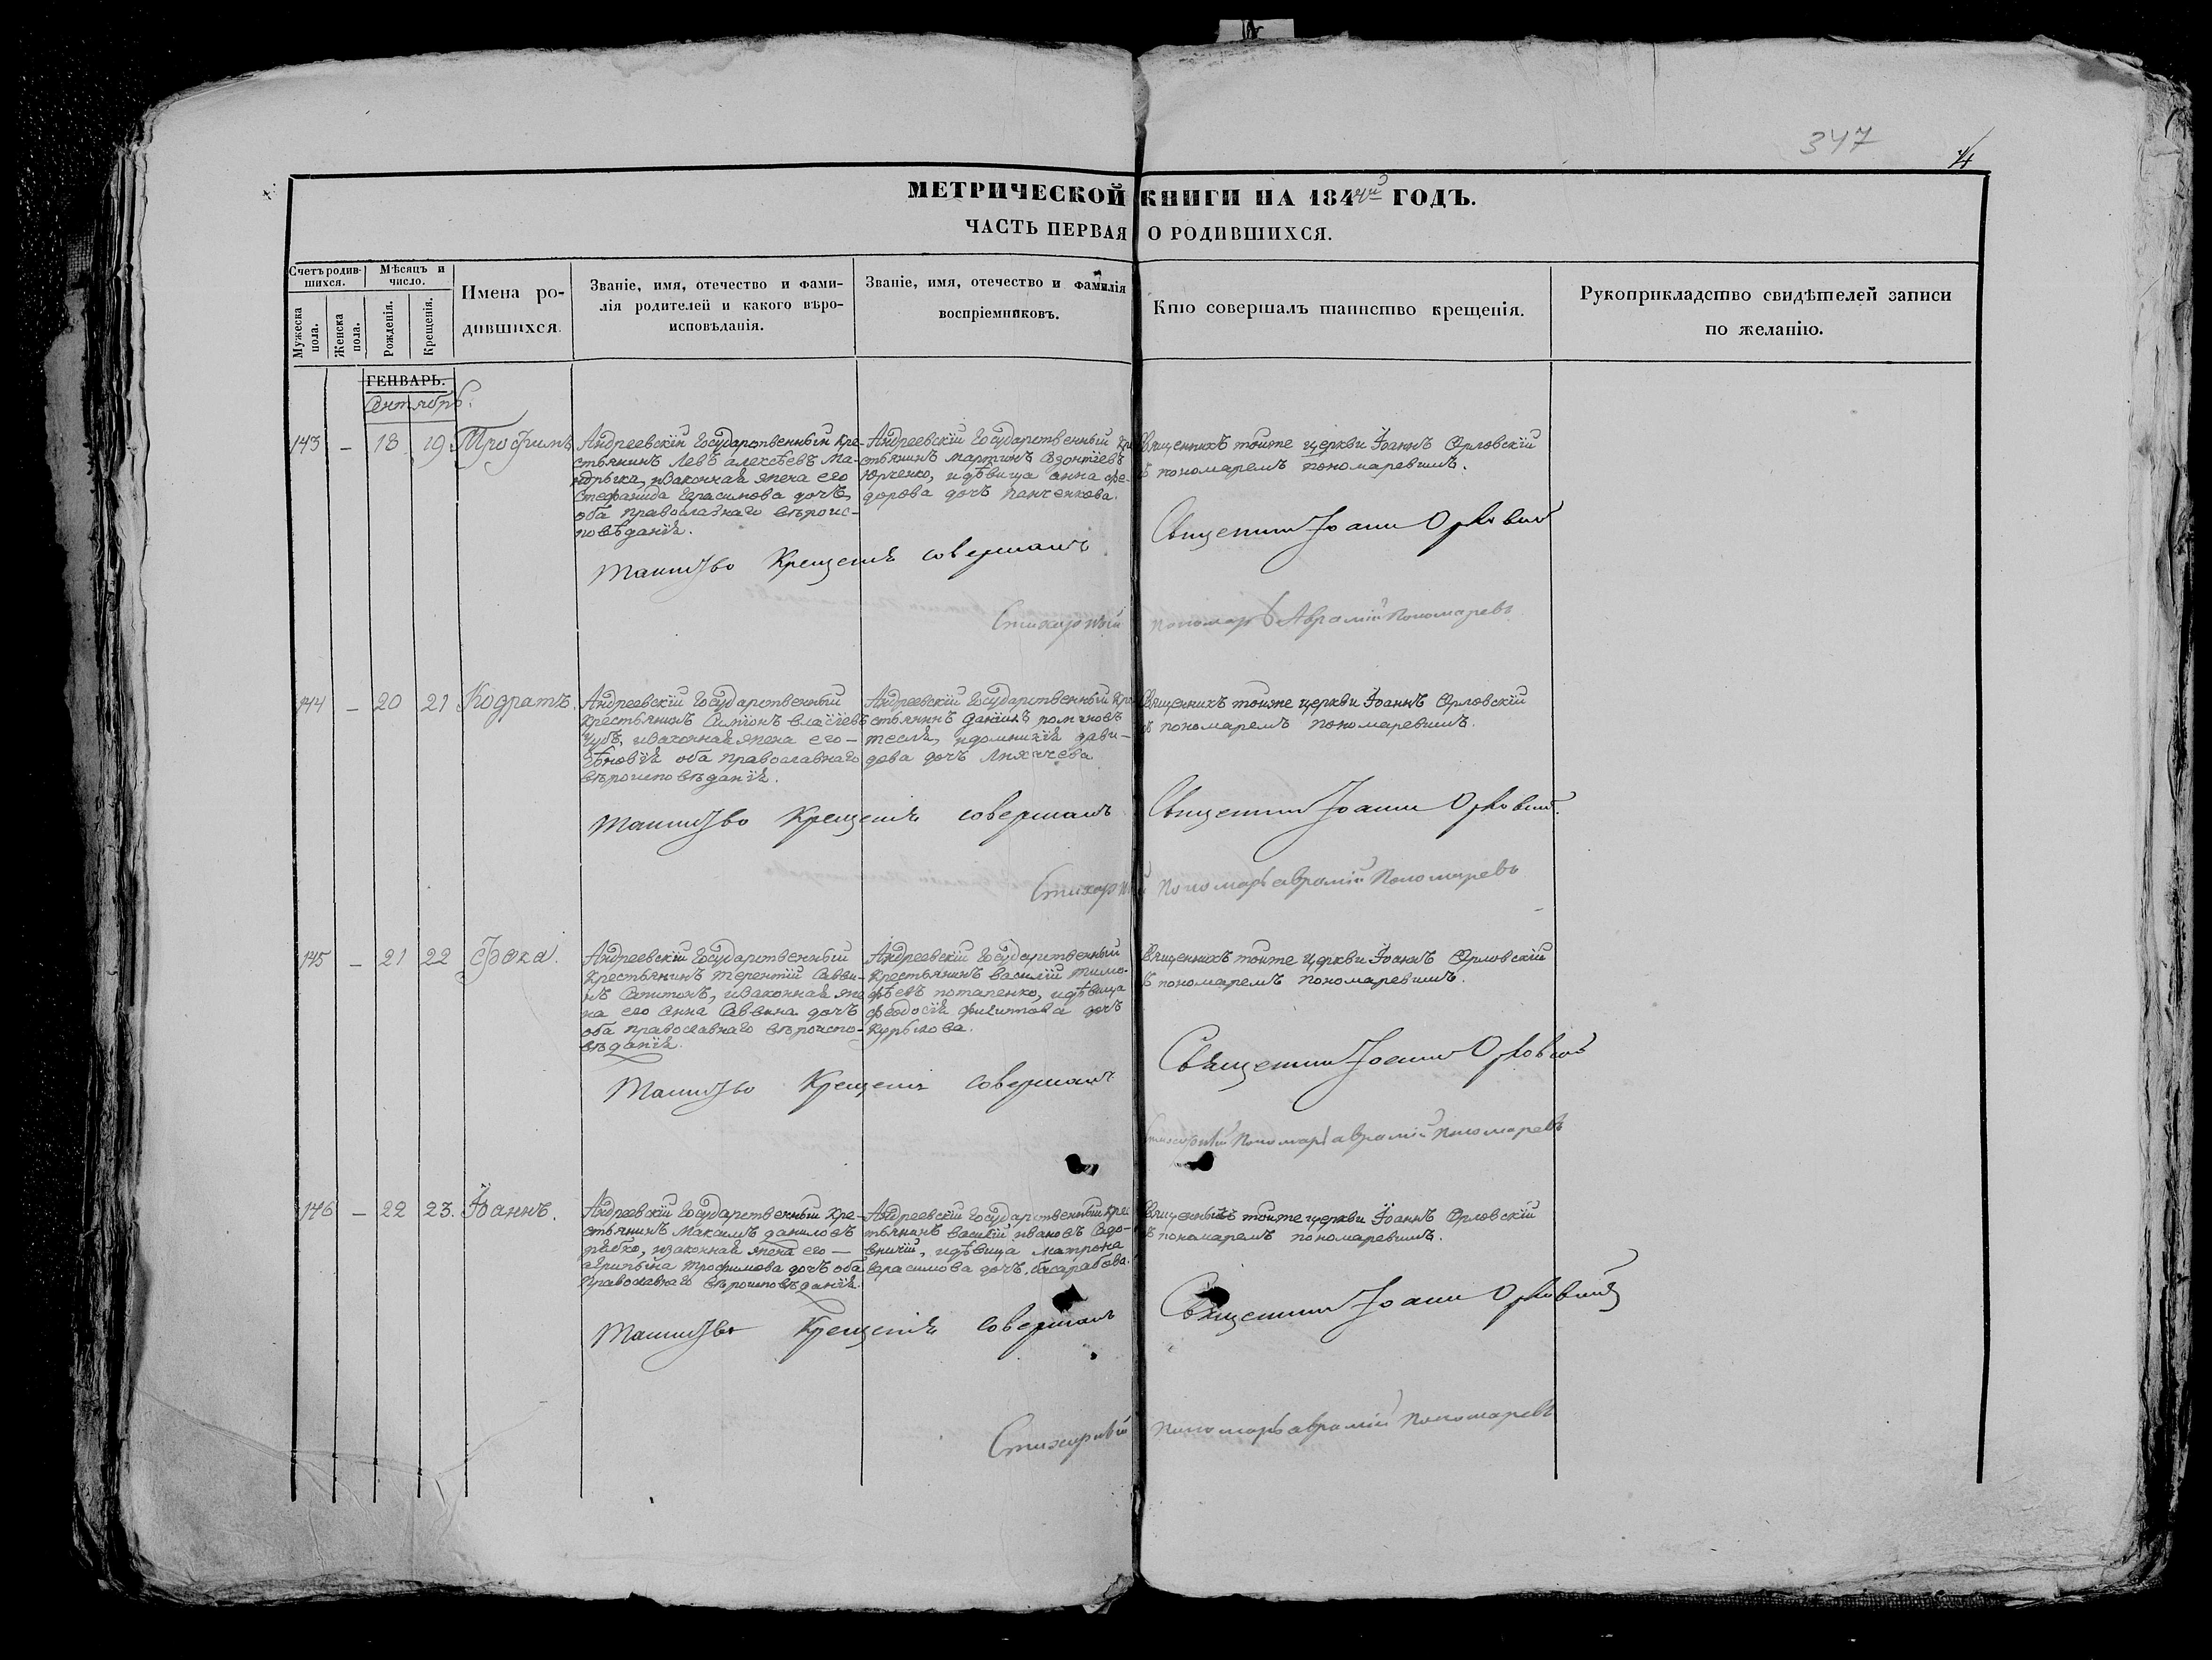 347
МЕТРИЧЕСКОЙ КНИГИ НА 1844й ГОДЪ.
ЧАСТЬ ПЕРВАЯ О РОДИВШИХСЯ.
Счетъ родившихся.
Мужеска пола.
Женска пола.
Мѣсяцъ и число.
Рожденія.
Крещенія.
Имена родившихся.
Званіе, имя, отечество и фамилія родителей и какого вѣроисповѣданія.
Званіе, имя, отечество и фамилія воспріемниковъ.
Кто совершалъ таинство крещенія.
Рукоприкладство свидѣтелей записи по желанію.
ГЕНВАРЬ.
Сентябрь.
143 – 18 19 Трофимъ
Андреевскій Государственный Кре-
стьянинъ Левъ алексѣевъ Ма-
изаконная жена его
Стефанида Герасимова дочь,
оба православнаго вѣроис-
повѣданія.
Андреевскій Государственный Кре
стьянинъ мартинъ
Юрченко, идѣвица анна Фе-
дорова дочь панченкова.
Священникъ тойже церкви Іоаннъ Орловскій
съ пономаремъ пономаревымъ.
Таинство Крещенія совершалъ Священникъ Іоаннъ Орловскій
Стихарный пономарь Аврамій Пономаревъ
144 – 20 21 Кодратъ.
Андреевскій Государственный
крестьянинъ Симіонъ власіевъ
Чубъ, изаконная жена его –
Зѣновія оба православнаго
вѣроисповѣданія.
Андреевскій Государственный Кре
стьянинъ даніилъ
тесля, идомникія дави-
дова дочь Лихачева
Священникъ тойже церкви Іоаннъ Орловскій
съ пономаремъ пономаревымъ.
Таинство Крещенія совершалъ Священникъ Іоаннъ Орловскій
Стихарный пономарь аврамій Пономаревъ
145 – 21 22 Фока.
Андреевскій Государственный
Крестьянинъ терентій Савви-
нъ изаконная же
на его анна Саввина дочь
оба православнаго вѣроиспо-
вѣданія.
Андреевскій Государственный
Крестьянинъ василій тимо-
фѣевъ потапенко, идѣвица
феодосія филиппова дочь
Священникъ тойже церкви Іоаннъ Орловскій
съ пономаремъ пономаревымъ.
Таинство Крещенія совершалъ Священникъ Іоаннъ Орловскій
Стихарный пономарь аврамій пономаревъ
146 – 22 23. Іоаннъ.
Андреевскій Государственный Кре-
стьянинъ Максимъ даниловъ
рябко, изаконная жена его –
агрипына трофимова дочь оба
православнаго вѣроисповѣданія.
Андреевскій Государственный Крес
тьянинъ василій ивановъ Садо-
вничій, идѣвица матрона
герасимова дочь басарабова.
Священникъ тойже церкви Іоаннъ Орловскій
съ пономаремъ пономаревымъ.
Таинство Крещенія совершалъ Священникъ Іоаннъ Орловскій
Стихарный пономарь аврамій пономаревъ